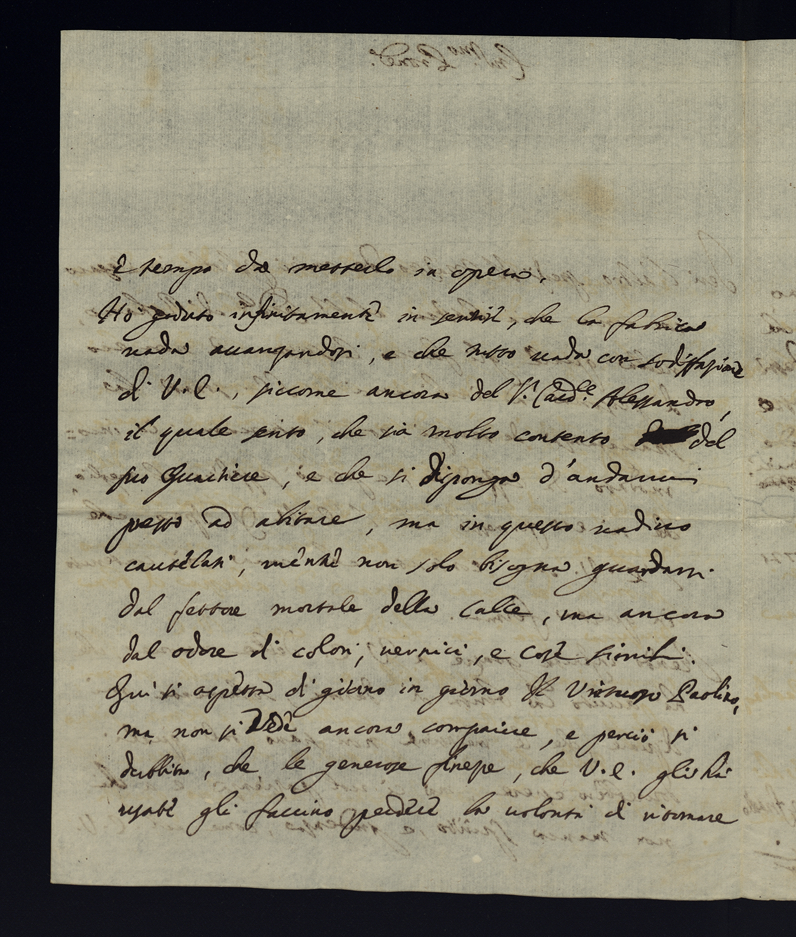 è tempo da metterlo in opera.
Ho goduto infinitamente in sentire, che la fabrica
vada avanzandosi, e che tutto vada con sodisfazione
di V. E., siccome ancora del S.r Card.le Alessandro,
il quale sento, che sia molto contento del
suo Quartiere, e che si disponga d'andarvi
presto ad abitare, ma in questo vadino
cautelati, mentre non solo bisogna guardarsi
dal fettore mortale della Calce, ma ancora
dal odore di colori, vernici, e cose simili.
Qui si aspetta di giorno in giorno Il Virtuoso Paolino,
ma non si Vede ancora comparire, e perciò si
dubbita, che le generose spese, che V. E. gli hà
usate gli faccino perdere la volontà di ritornare